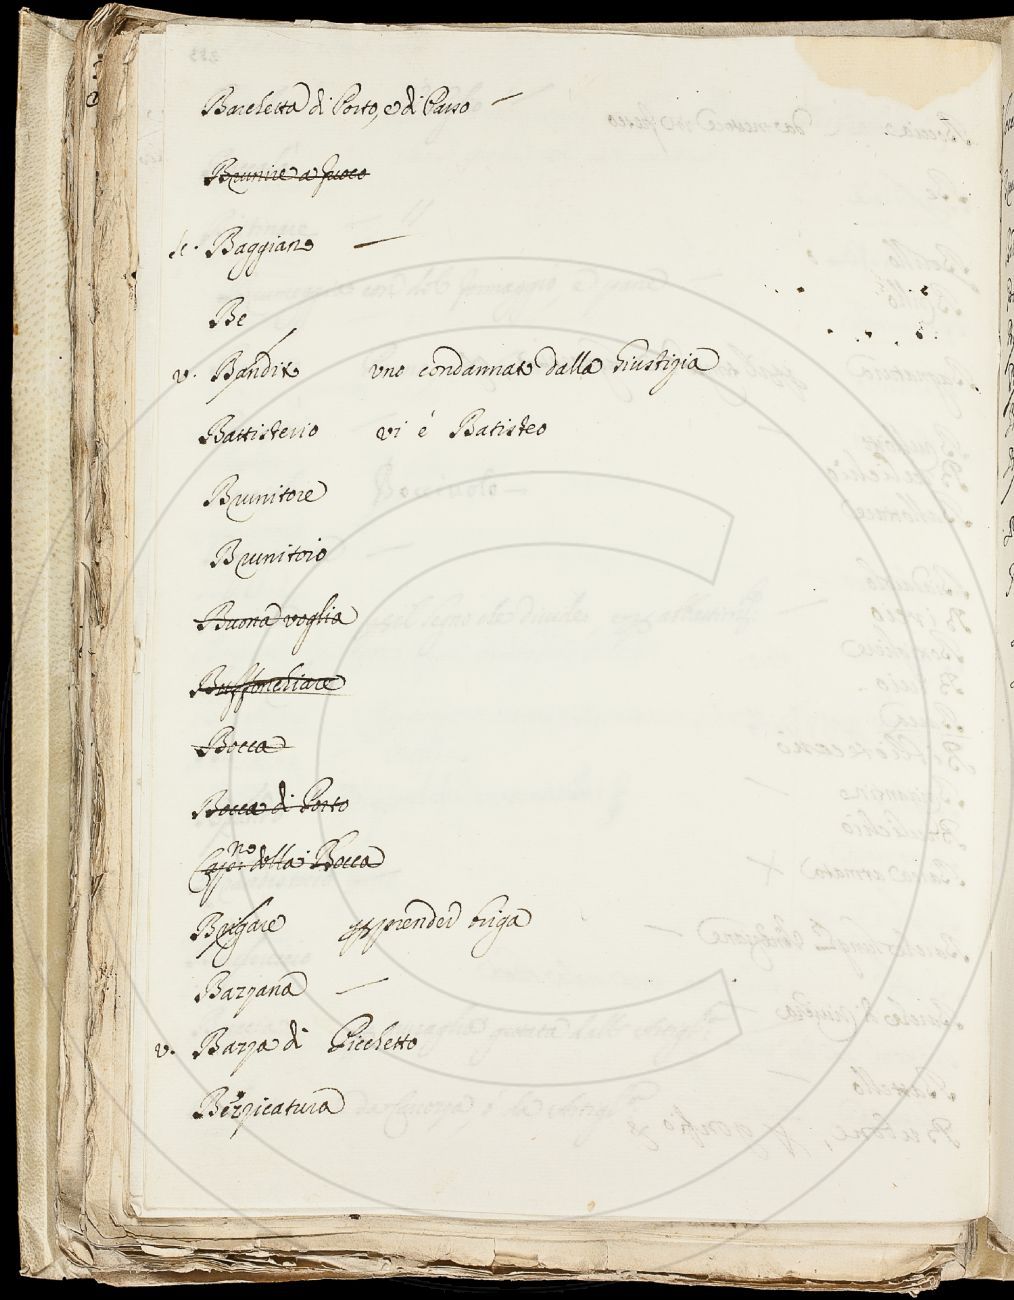 Barchetta di Porto, e di Passo —
Brunire a fuoco
Baggiano —
Be
v. Bandito uno condannato dalla Giustizia
Battisterio vi é Batisteo
Brunitore
Brunitoio
Buona voglia
Buffoneliare
Bocca
Bocca di Porto
della Bocca
Brigare prender briga
Bazzana —
v. Bazza di Picchetto
Berzicatura